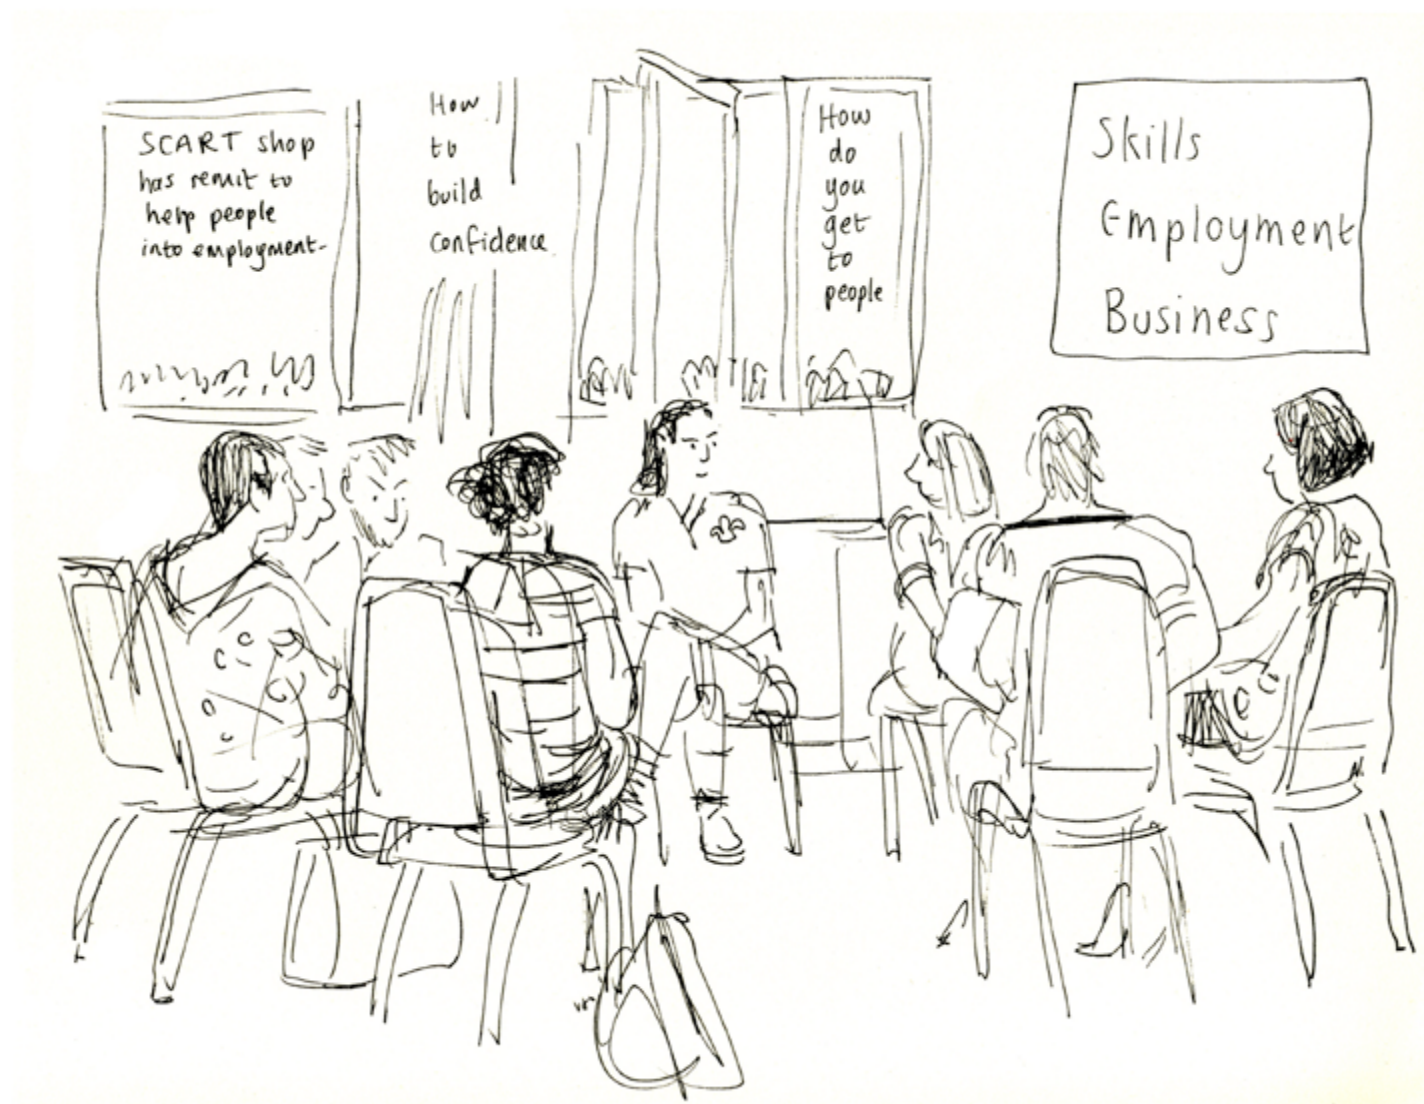 SCART shop
has remit to
help people
into employment-
How
to
build
confidence
How
do
you
get
to
people
Skills
Employment
Business